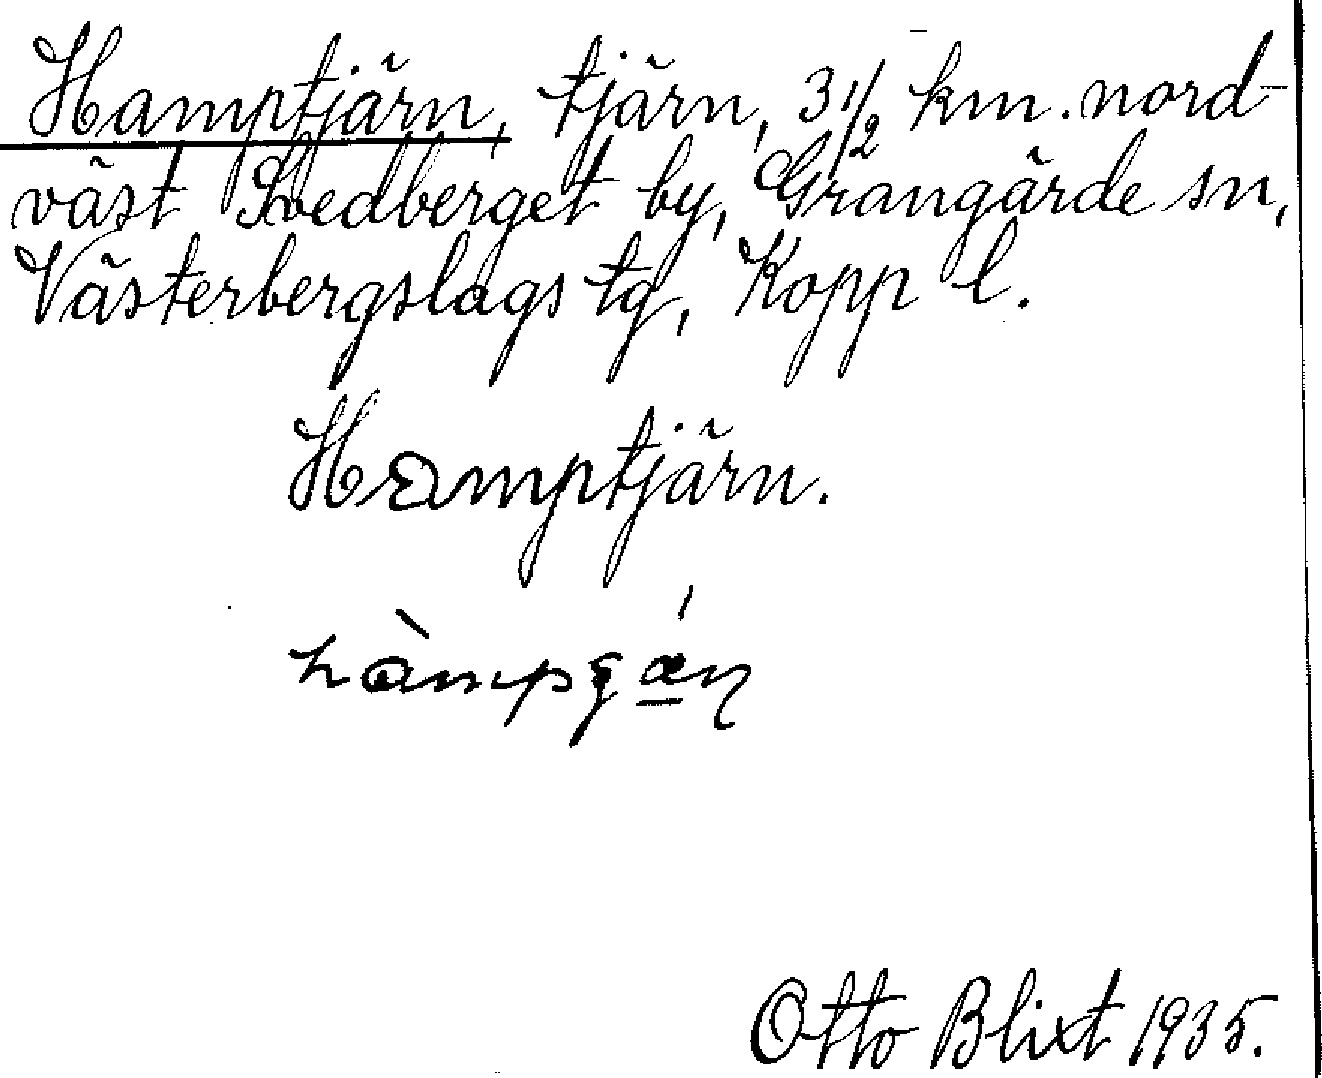 Hamptjärn, tjärn, 3 1/2 km. nord-
väst Svedberget by, Grangärde sn,
Västerbergslags tg, Kopp l.
Hamptjärn.
Otto Blixt 1935.